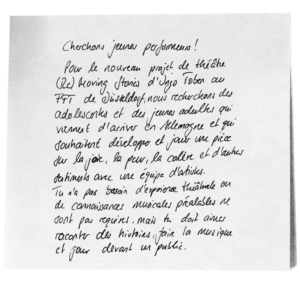 Cherchons jeunes performeurs !
Pour le nouveau projet de théâtre
(Re) Moving Stories d'Ingo Toben au
FFT de Düsseldorf, nous recherchons des
adolescentes et des jeunes adultes qui
viennent d'arriver en Allemagne et qui
souhaitent développer et jouer une pièce
sur la joie, la peur, la colère et d'autres
sentiments avec une équipe d'artistes.
Tu n'a pas besoin d'expérience théâtrale ou
de connaissances musicales préalables ne
sont pas requises, mais tu doit aimer
raconter des histoires, faire la musique
et jouer devant un public.